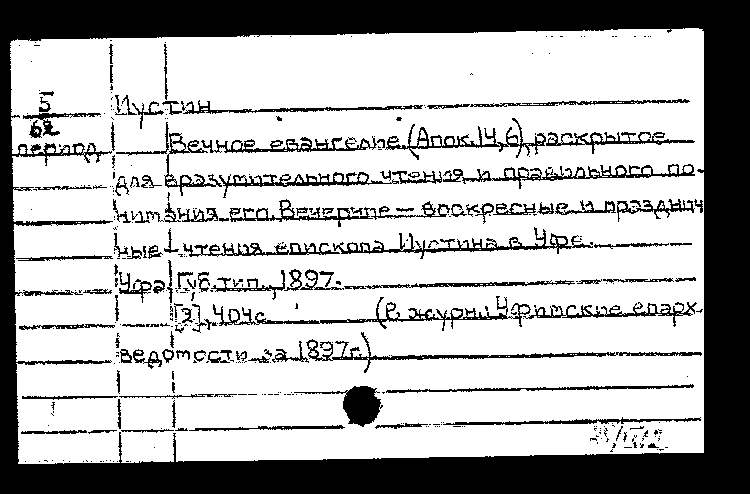 5
62
период
Иустин
Вечное евангелие (Апок.14,6), раскрытое
для вразумительного чтения и правильного по-
нимания его. Вечерние — воскресные и празднич
ные — чтения епископа Иустина в Уфе.
Уфа, Губ. тип., 1897.
[3], 404с. (В журн. Уфимские епарх.
ведомости за 1897г.)